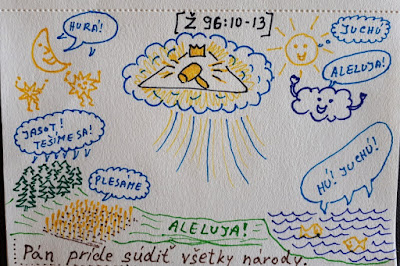 [Ž 96:10-13]
HURÁ!
JUCHÚ
ALELUJA!
JASOT!
TEŠÍME SA!
PLESAME
HÚ! JUCHÚ!
ALELUJA!
Pán príde súdiť všetky národy.